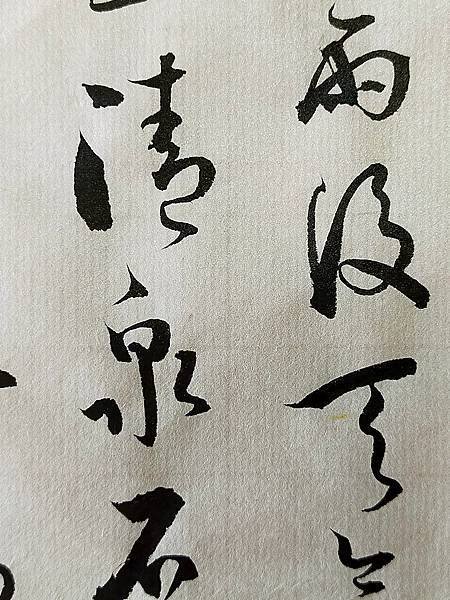 雨後天
清泉石